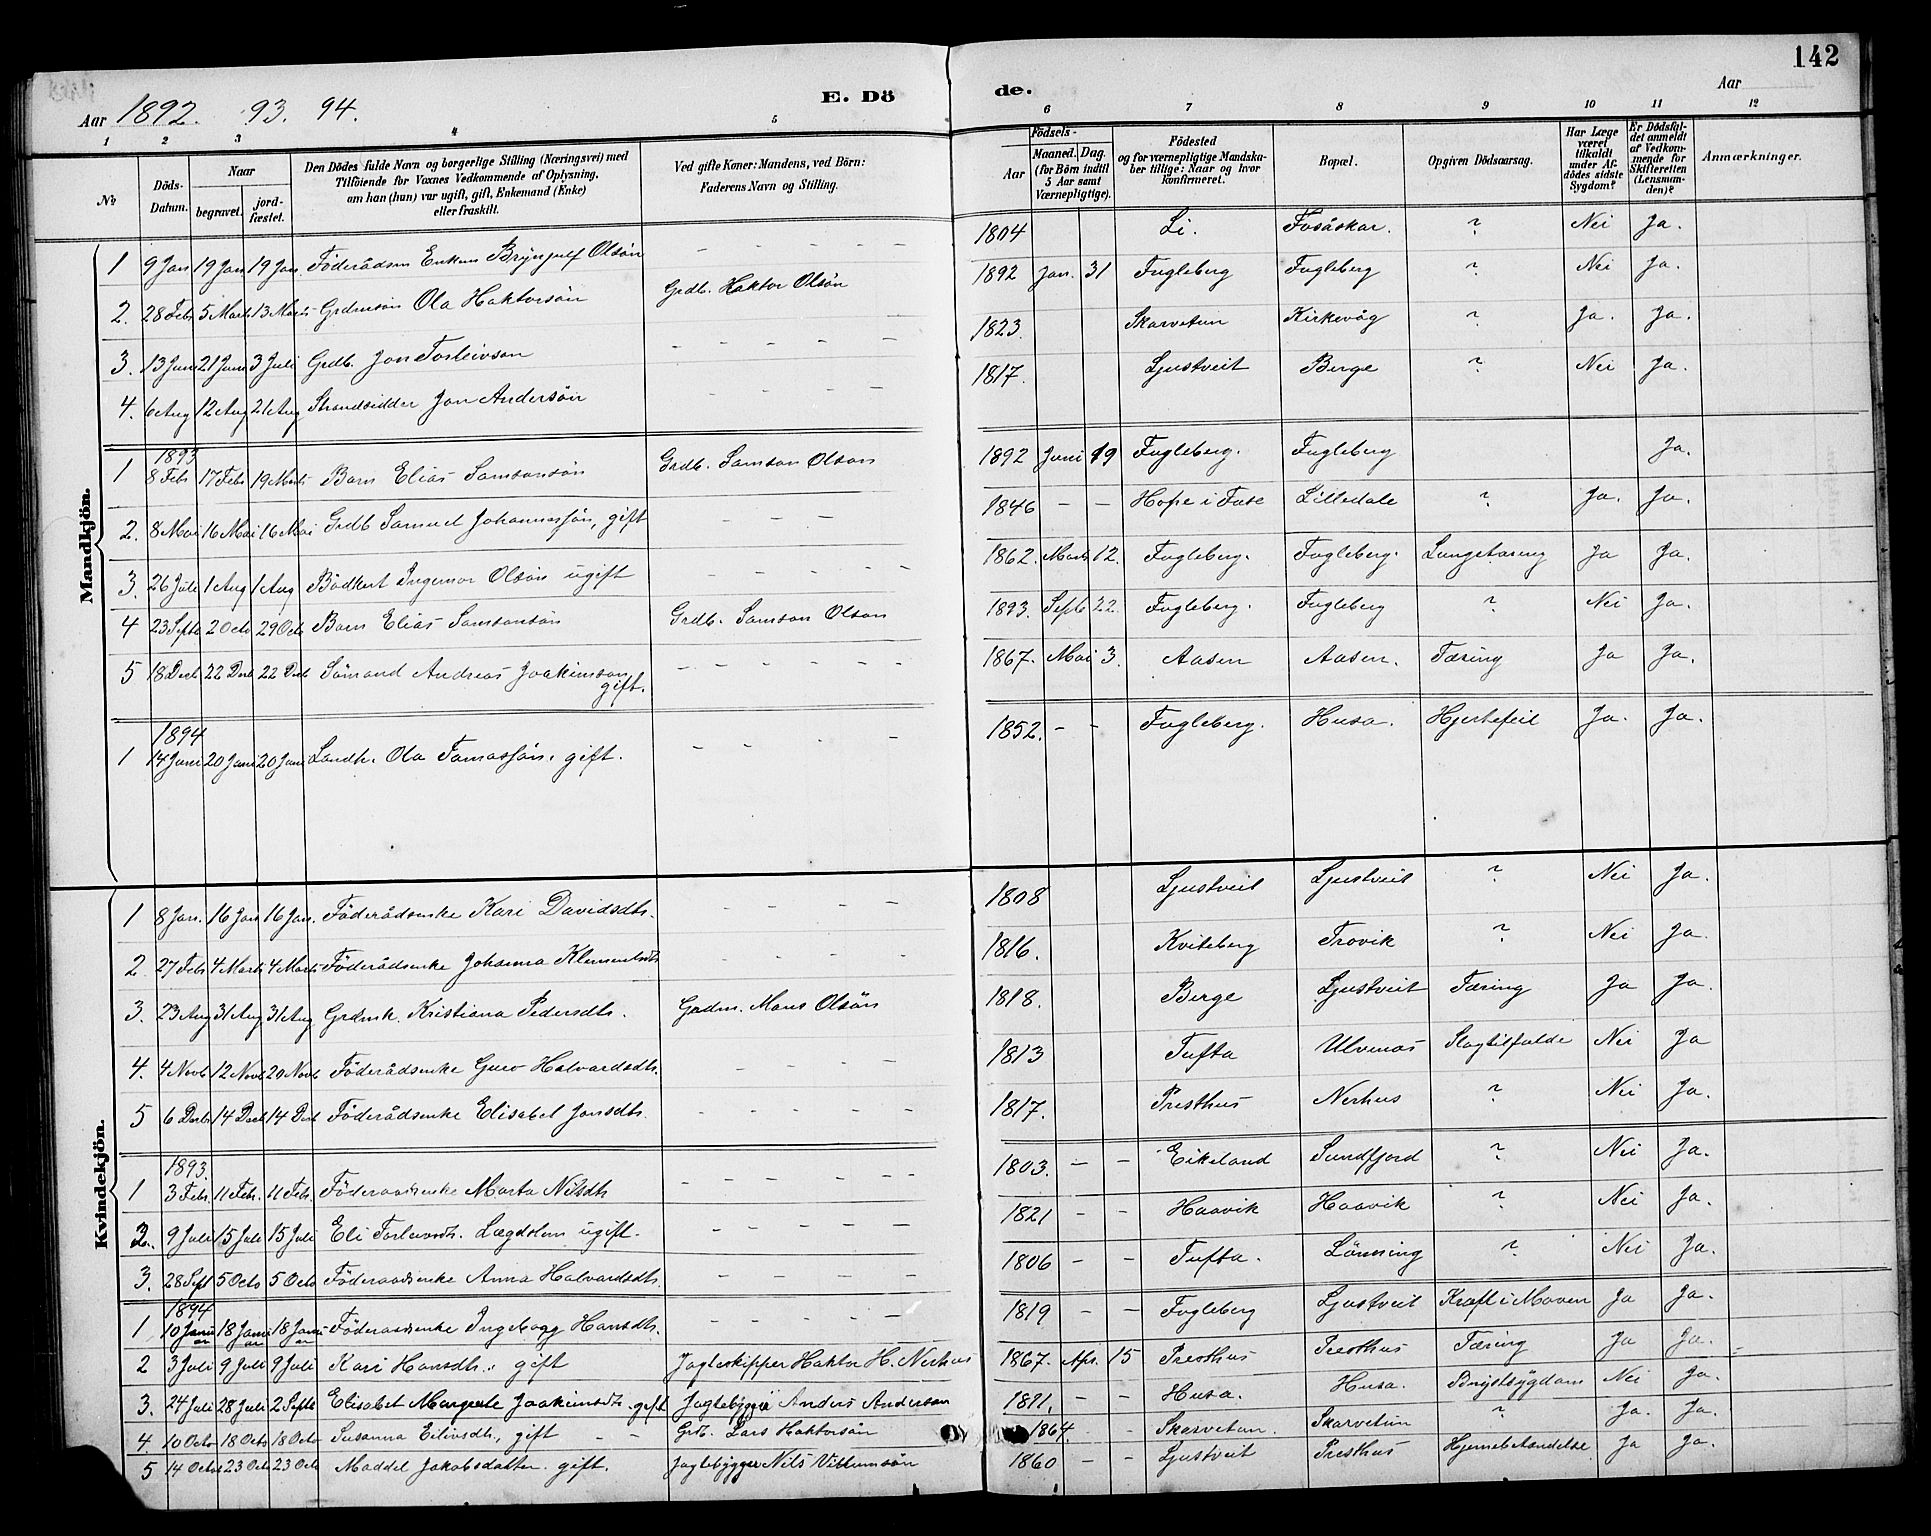 142
Aar 1892. 93. 94.
E. Dö de.
Aar
1 2 3 4 5 6 7 8 9 10 11 12
No
Döds-Datum.
Naar
begravet.
jord-fæstet.
Den Dödes fulde Navn og borgerlige Stilling (Næringsvei) med
Tilföiende for Voxnes Vedkommende af Oplysning,
om han (hun) var ugift, gift, Enkemand (Enke)
eller fraskilt.
Ved gifte Koner: Mandens, ved Börn:
Faderens Navn og Stilling.
Födsels-
Aar
Maaned. Dag.
(for Börn indtil
5 Aar samt
Værnepligtige).
Födested
og for værnepligtige Mandska-
ber tillige: Naar og hvor
konfirmeret.
Bopæl.
Opgiven Dödsaarsag.
Har Læge
været
tilkaldt
under Af-
dödes sidste
Sygdom?
Er Dödsfal-
det anmeldt
af Vedkom-
mende for
Skifteretten
(Lensman-
den)?
Anmærkninger.
Mandkjön.
1 9 Jan 19 Jan 19 Jan. Föderådsm Enkem Brynjulf Olsön – – – – – 1804 Li. Fosåskar. ? Nei Ja.
2. 28 Feb 5 Marts 13 Marts Grdmsön Ola Haktorsön Grdb. Haktor Olsön 1892 Jan. 31 Fugleberg Fugleberg ? Nei Ja.
3. 13 Juni 21 Juni 3 Juli Grdb. Jon Torleivson – – – – – 1823. Skarvetun Kirkevåg ? Ja. Ja.
4. 6 Aug 12 Aug 21 Aug Strandsidder Jon Andersön – – – – 1817. Ljustveit Berge ? Nei Ja.
1893
1 8 Feb 17 Feb 19 Marts Barn Elias Samsonsön Grdb. Samson Olson 1892 Juni 19 Fugleberg. Fugleberg Ja.
2. 8 Mai 16 Mai 16 Mai Grdb Samuel Johannessön, gift – – – 1846 – – Hope i Fuse Lilledale ? Ja. Ja.
3. 26 Juli 1 Aug 1 Aug Bödkert Ingemar Olsön ugift – – – – – 1862. Marts 12. Fugleberg. Fugleberg. Lungetæring Ja Ja.
4 23 Septb 2 Octo 29 Octo Barn Elias Samsonsön Grdb. Samson Olson 1893. Septb 22. Fugleberg. Fugleberg ? Nei Ja.
5 18 Decb 22 Decb 22 Decb Sömand Andreas Joakimson gift. – – – – – 1867. Mai 3. Aasen Aasen. Tæring Ja Ja.
1894
1 14 Janr 20 Janr 20 Janr Landh. Ola Tomassön. gift. – – – – 1852. – – Fugleberg. Husa. Hjertefeil Ja. Ja.
Kvindekjön.
1 8 Jan. 16 Jan 16 Jan. Föderådsenke Kari Davidsdtr. – – – – – 1808 Ljustveit Ljustveit ? Nei Ja.
2. 27 Feb 4 Marts 4 Marts Föderådsenke Johanna Klementsdtr – – – – – 1816. Kviteberg Trovik ? Nei Ja.
3. 23 Aug 31 Aug 31 Aug Grdmk. Kristiana Pedersdtr. Grdm. Mons Olsön 1818. Berge Ljustveit Tæring Ja Ja.
4. 4 Novb 12 Novb 20 Novb Föderådsenke Guro Halvardsdtr. – – – – 1813 Tufta Ulvenås Slagtilfælde Nei Ja
5 6 Decb 14 Decb 14 Decb Föderådsenke Elisabet Jonsdtr. – – – – – 1817. Presthus Nerhus ? Nei Ja.
1893.
1 3 Feb. 11 Feb. 11 Feb. Föderaadsenke Marta Nilsdtr – – – – – 1803. – – Eikeland Sundfjord ? Nei Ja.
2. 9 Juli 15 Juli 15 Juli Eli Torleivsdtr. Lægdslem ugift. – – – – – 1821 – – Haavik Haavik ? Nei Ja.
3. 28 Sept 5 Octo 5 Octo Föderaadsenke Anna Halvardsdtr. – – – – – 1806 – – Tufta. Lönning ? Nei Ja.
1894
1 10 Januar 18 Januar 18 Januar Föderaadsenke Ingeborg Hansdtr. – – – – – 1819 – – Fugleberg Ljustveit Kræft i Maven Ja Ja.
2 3 Juli 9 Juli 9 Juli Kari Hansdtr. gift Jagteskipper Haktor H. Nerhus 1867. Apr. 15 Presthus Presthus Tæring Ja Ja.
3. 24 Juli 28 Juli 2 Septb Elisabet Margrete Joakimsdtr. gift Jagtebygger Anders Anderson 1821. – – Husa. Husa. Brystsygdom Nei Ja.
4 10 Octo 18 Octo 18 Octo Susanna Eilivsdtr, gift – – Grdb. Lars Haktorsön 1864. – – Skarvetun. Skarvetun ? Ja. Ja.
5 14 Octob 23 Octo 23 Octo Maddel Jakobsdatter. gift. Jagtebygger Nils Villumsön 1860 – – Ljustveit Presthus Hjernebetændelse Ja Ja.